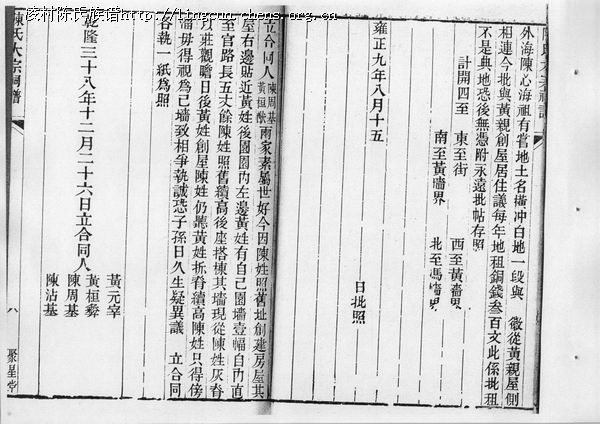 凌村陈氏族谱http://lingcun-chens.org.cn
外海陳心海祖有嘗地土名橫冲白地一段與 徵從黃親屋側
相連今批與黃親創屋居住議每年地租銅錢叁百文此係批租
不是典地恐後無憑附永遠批帖存照
計開四至 東至街 西至黃墻界
南至黃墻界 北至馮墻界
雍正九年八月十五 日批照
立合同人陳周基黃桓 兩家素屬世好今因陳姓照舊址創建房屋其
屋右邊貼近黃姓後園園內左邊黃姓有自己園墻壹幅自內直
至官路長五丈餘陳姓照舊續高後座搭棟其墻現從陳姓灰脊
打莊觀瞻日後黃姓創屋陳姓仍聽黃姓折脊續高陳姓只得傍
墻毋得視為己墻致相爭執誠恐子孫日久生疑異議 立合同
各執一紙為照
乾隆三十八年十二月二十六日立合同人
黃元宰
黃桓
陳周基
陳沾基
陳氏大宗祠譜
八
聚星堂